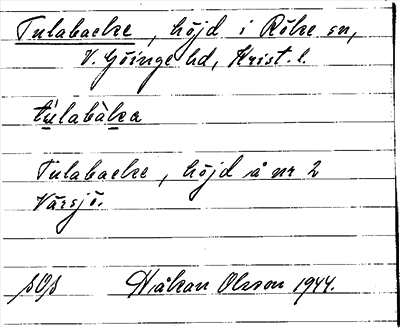 Tulabacke, höjd i Röke sn,
V. Göinge hd, Krist. l.
tu̍labàka
Tulabacke, höjd å nr 2
Värsjö.
Håkan Olsson 1944.